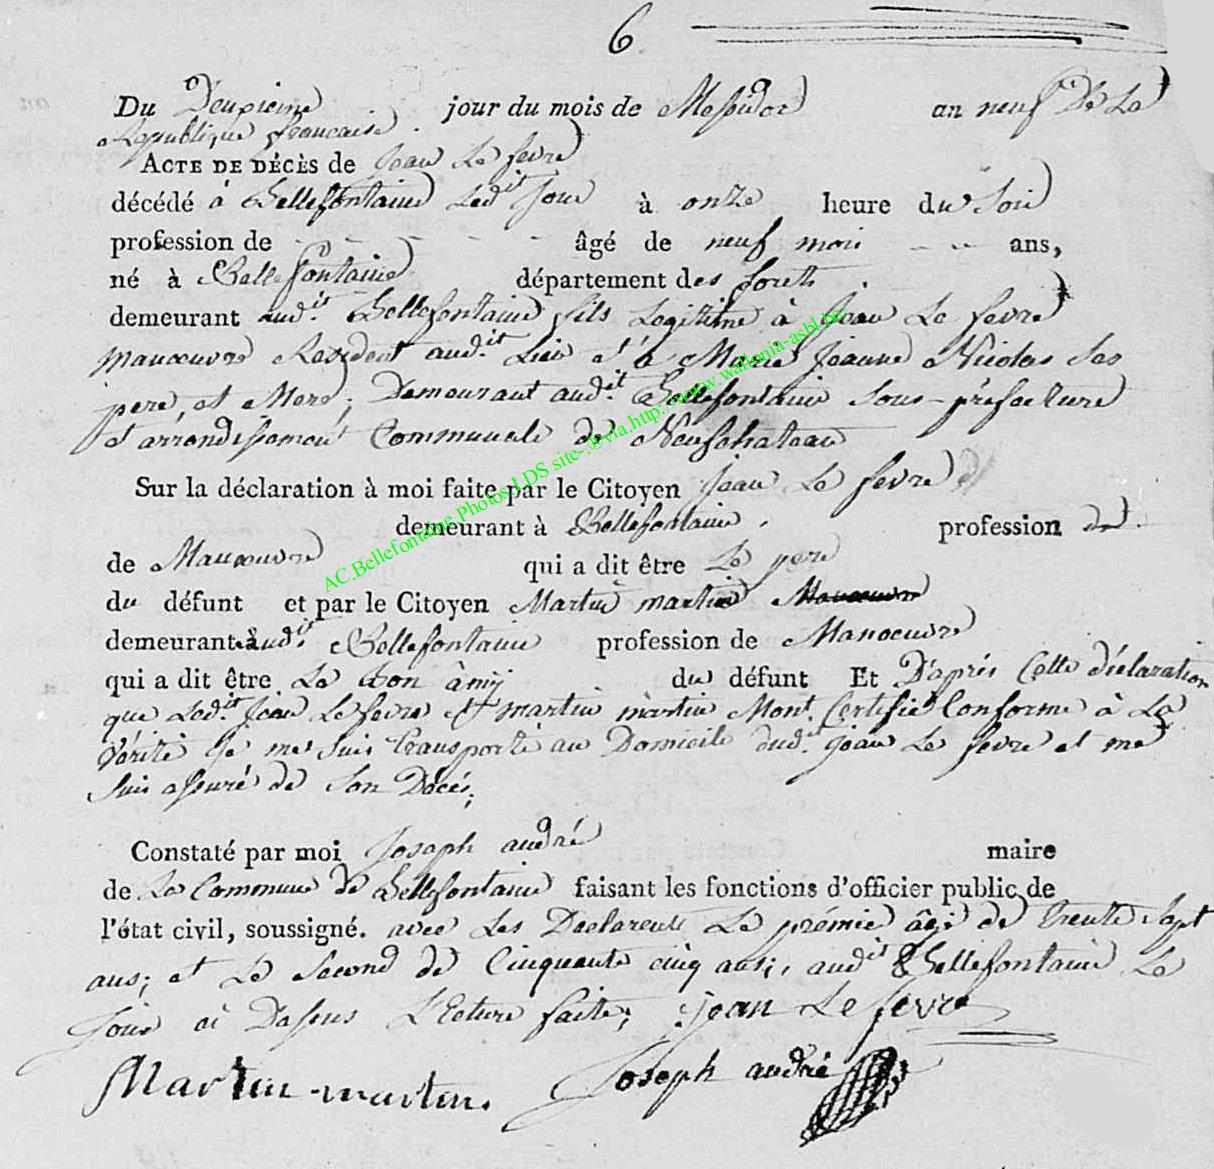 6
Du Deuxieme jour du mois de Messidor an neuf De La
Republique francaise.
ACTE DE DÉCÈS de Jean Le fevre
décédé à Bellefontaine Ledit Jour à onze heure du Soir
profession de - - - - - âgé de neuf mois - - ans,
né à Bellefontaine département des forets
demeurant aud.it Bellefontaine fils Legitime à Jean Le fevre
manoeuvre Resident aud.it Lieu et à Marie Jeanne Nicolas Ses
pere, et Mere; Demeurant aud.it Bellefontaine Sous-préfecture
et arrondissement Communale de Neufchateau
Sur la déclaration à moi faite par le Citoyen Jean Le fevre
demeurant à Bellefontaine, profession
de Manoeuvre qui a dit être Le pere
du défunt et par le Citoyen Martin martin Manoeuvre
demeurant à aud.it Bellefontaine profession de Manoeuvre
qui a dit être Le bon âmij du défunt Et D'aprés Cette déclaration
que Led.it Jean Le fevre et martin martin Mont Certifié Conforme à La
Vérité Je me Suis transporté au Domicile dud.it Jean Le fevre et me
Suis assuré de Son Décés;
Constaté par moi Joseph andré maire
de La Commune de Bellefontaine faisant les fonctions d'officier public de
l'état civil, soussigné. avec Les Declareus Le prémie âgé de trente Sept
ans; et Le Second de Cinquante cinq ans; aud.it Bellefontaine Le
Jour Dessus L'Ecture faite; jean Le fevre
Joseph andré
Martin martin.
AC.Bellefontaine.Photos.LDS site-.®via.http://www.wallonia-asbl.be